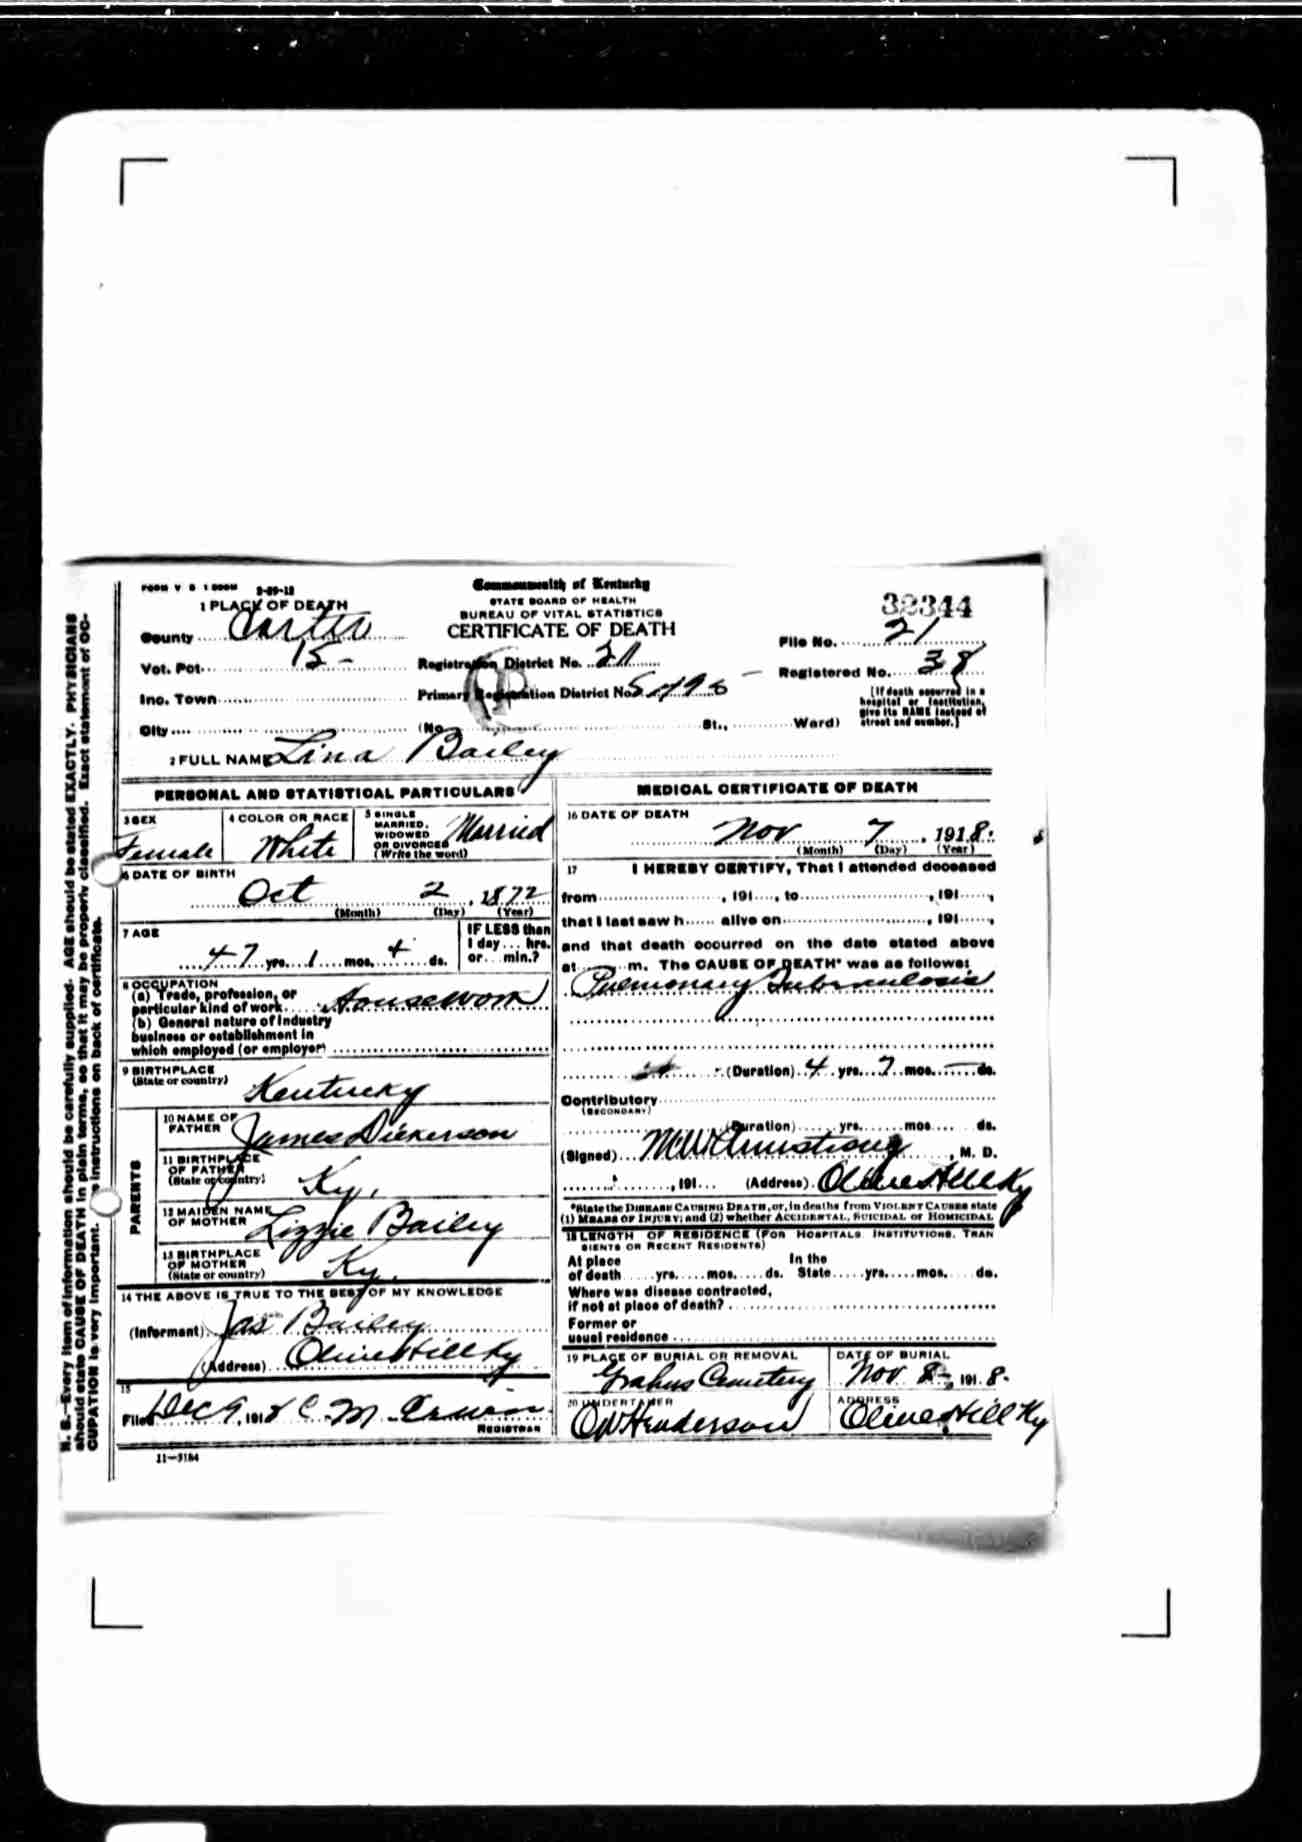 FORM V S 1 500M 2-29-12
Commonwealth of Kentucky
STATE BOARD OF HEALTH
BUREAU OF VITAL STATISTICS
CERTIFICATE OF DEATH
32344
1 PLACE OF DEATH
County Carter
File No. 21
Vot. Pct. 15
Registration District No.
Registered No. 38
Inc. Town
Primary Registration District No.
[If death occurred in a
hospital or institution,
give its NAME instead of
street and number.]
City (No. St., Ward)
2 FULL NAME Lina Bailey
PERSONAL AND STATISTICAL PARTICULARS
3 SEX Female
4 COLOR OR RACE White
5 SINGLE
MARRIED,
WIDOWED
OR DIVORCED
(Write the word) Married
6 DATE OF BIRTH
Oct 2, 1872
(Month) (Day) (Year)
7 AGE
47 yrs. 1 mos. 4 ds.
IF LESS than
1 day ... hrs.
or ... min.?
8 OCCUPATION
(a) Trade, profession, or
particular kind of work Housework
(b) General nature of industry
business or establishment in
which employed (or employer)
9 BIRTHPLACE
(State or country) Kentucky
PARENTS
10 NAME OF
FATHER James Dickerson
11 BIRTHPLACE
OF FATHER
(State or country) Ky.
12 MAIDEN NAME
OF MOTHER Lizzie Bailey
13 BIRTHPLACE
OF MOTHER
(State or country) Ky.
14 THE ABOVE IS TRUE TO THE BEST OF MY KNOWLEDGE
(Informant) Jas Bailey
(Address) Olive Hill Ky
15
Filed Dec 9, 1918 C. M.
REGISTRAR
11—3184
MEDICAL CERTIFICATE OF DEATH
16 DATE OF DEATH
Nov 7, 1918.
(Month) (Day) (Year)
17 I HEREBY CERTIFY, That I attended deceased
from, 191, to, 191,
that I last saw h alive on, 191,
and that death occurred on the date stated above
at m. The CAUSE OF DEATH* was as follows:
Pulmonary Tuberculosis
(Duration) 4 yrs. 7 mos. — ds.
Contributory
(SECONDARY)
(Duration) yrs. mos. ds.
(Signed) M W Armstrong, M. D.
, 191 (Address) Olive Hill Ky
*State the DISEASE CAUSING DEATH, or, in deaths from VIOLENT CAUSES state
(1) MEANS OF INJURY; and (2) whether ACCIDENTAL, SUICIDAL or HOMICIDAL
18 LENGTH OF RESIDENCE (FOR HOSPITALS, INSTITUTIONS, TRAN
SIENTS OR RECENT RESIDENTS)
At place In the
of death yrs. mos. ds. State yrs. mos. ds.
Where was disease contracted,
if not at place of death?
Former or
usual residence
19 PLACE OF BURIAL OR REMOVAL
Grahns Cemetery
DATE OF BURIAL
Nov 8, 1918.
20 UNDERTAKER
Henderson
ADDRESS
Olive Hill Ky
N. B.—Every item of information should be carefully supplied. AGE should be stated EXACTLY. PHYSICIANS
should state CAUSE OF DEATH in plain terms, so that it may be properly classified. Exact statement of OC-
CUPATION is very important. instructions on back of certificate.